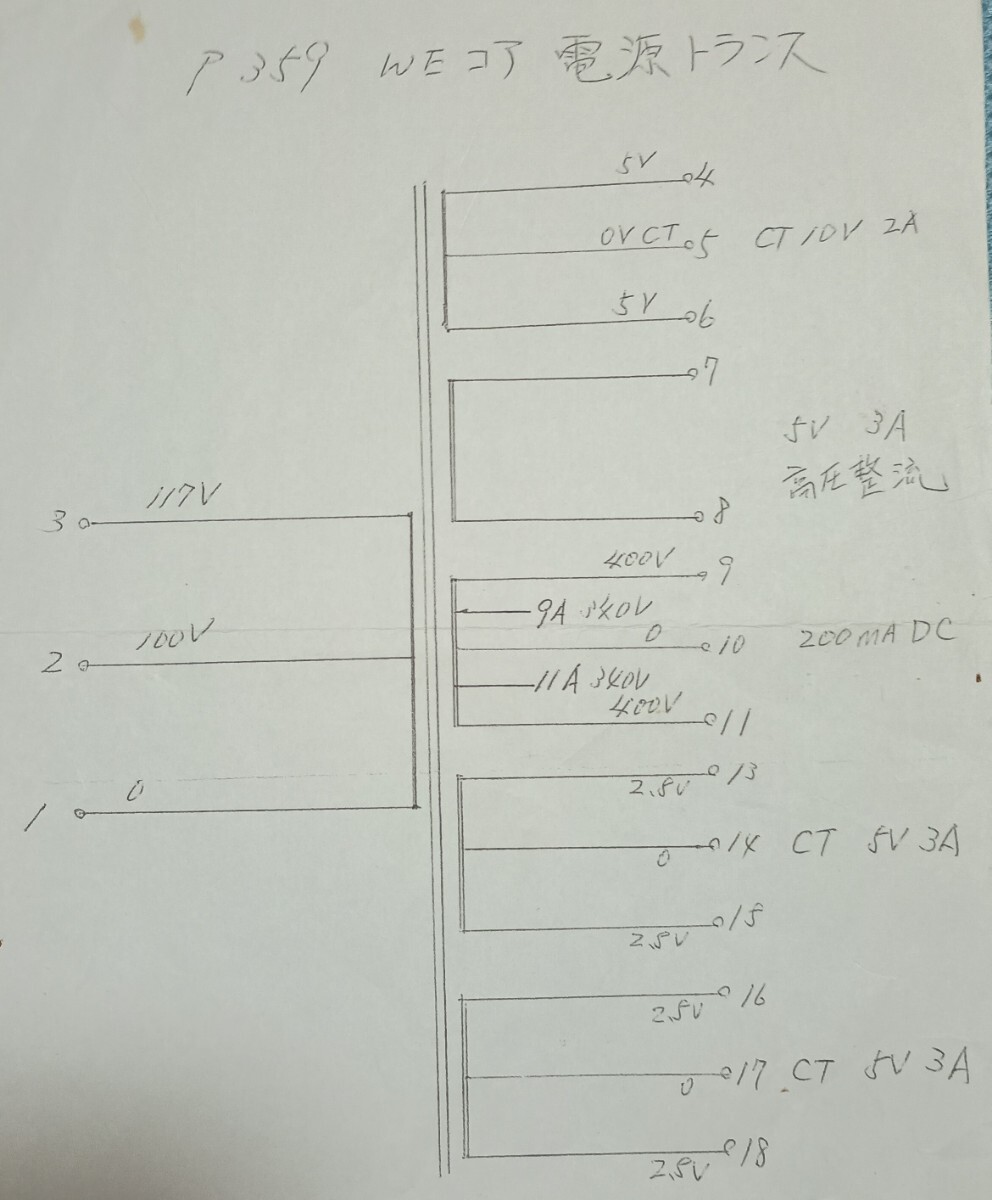 P359 WEコア 電源トランス
5V 4
0V CT 5 CT 10V 2A
5V 6
7
5V 3A
高圧整流
3 117V
8
400V 9
9A 340V
2 100V
0 10 200MA DC
11A 340V
400V 11
13
2.5V
1 0
14 CT 5V 3A
0
15
2.5V
16
2.5V
17 CT 5V 3A
0
18
2.5V